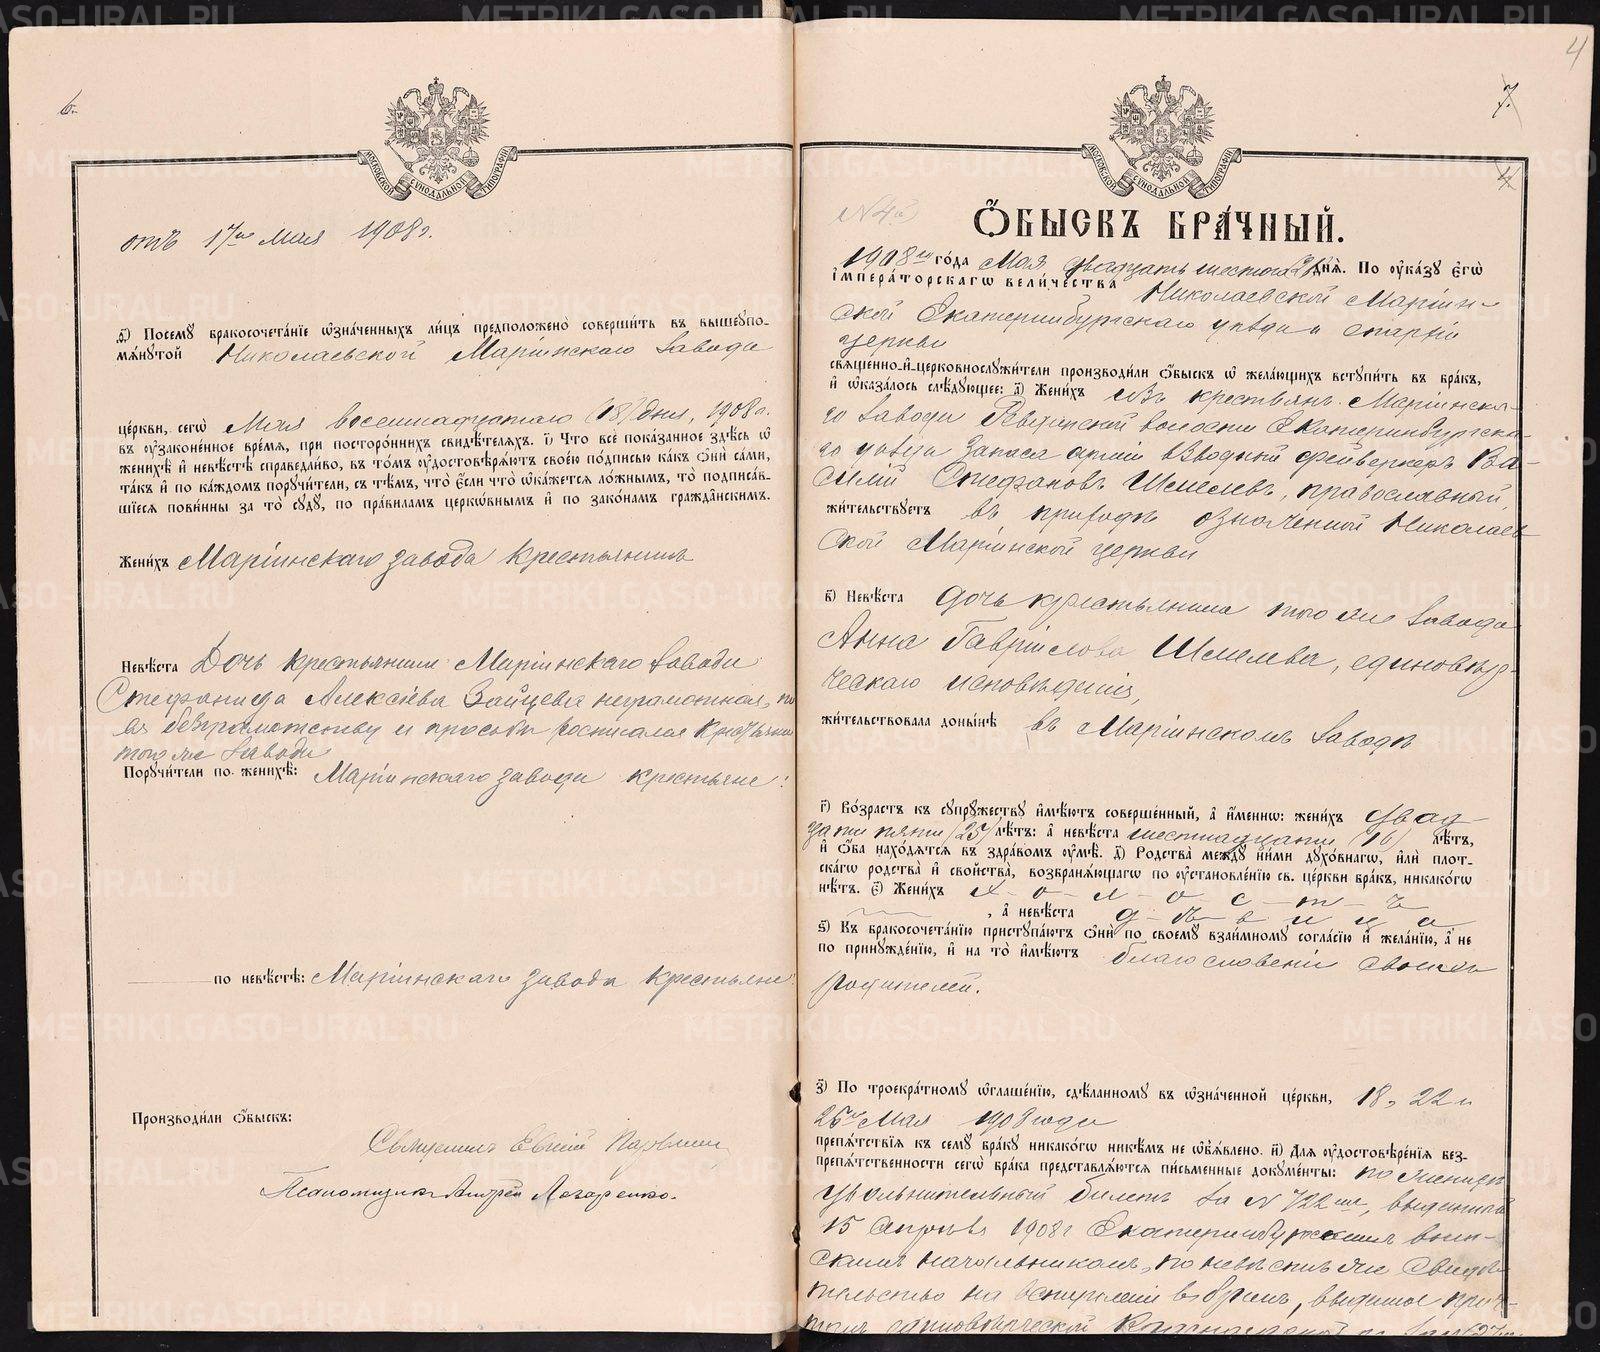 6.
МОСКОВСКОЙ СѴНОДАЛЬНОЙ ТИПОГРАФІИ
отъ 17го Мая 1908 г.
Посемꙋ бракосочетаніе ѡзначенныхъ лицъ предположено совершить въ вышеупо-
мянутой Николаевской Маріинскаго завода
церкви, сегѡ Мая восемнадцатаго (18) дня, 1908 г.
въ узаконенное время, при постороннихъ свидѣтеляхъ. і) Что всё показанное здѣсь ѡ
женихѣ и невѣстѣ справедливо, въ томъ удостовѣряютъ своею подписью какъ они сами,
такъ и по каждомъ поручители, съ тѣмъ, что если что ѡкажется ложнымъ, то подписав-
шіеся повинны за то суду, по правиламъ церковнымъ и по законамъ гражданскимъ.
Женихъ Маріинскаго завода крестьянинъ
Невѣста Дочь крестьянина Маріинскаго завода
Стефанида Алексіева Зайцева неграмотная, по
ея безграмотству и просьбѣ росписался крестьянинъ
того же завода
Поручители по женихѣ: Маріинскаго завода крестьяне:
по невѣстѣ: Маріинскаго завода крестьяне
Производили ѡбыскъ:
Священникъ Евгеній
Псаломщикъ Андрей Лазаренко.
4
7.
4
МОСКОВСКОЙ СѴНОДАЛЬНОЙ ТИПОГРАФІИ
N 4
ѠБЫСКЪ БРАЧНЫЙ.
1908го года Мая двадцать шестого (26) дня. По указу егѡ
императорскагѡ величества Николаевской Маріин-
ской Екатеринбургскаго уѣзда епархіи
церкви
священно-и-церковнослужители производили ѡбыскъ ѡ желающихъ вступить въ бракъ,
и ѡказалось слѣдующее: а) Женихъ изъ крестьянъ Маріинска-
го завода Ревдинской волости Екатеринбургска-
го уѣзда запаса арміи взводный фейверкеръ Ва-
силій Стефановъ Шмелевъ, православный,
жительствуетъ въ приходѣ означенной Николаев-
ской Маріинской церкви
в) Невѣста дочь крестьянина того же завода
Анна Гавріилова Шмелева, единовѣр-
ческаго исповѣданія,
жительствовала донынѣ въ Маріинскомъ заводѣ
г) Возрастъ къ супружеству имѣютъ совершенный, а именнѡ: женихъ двад-
цати пяти (25) лѣтъ: а невѣста шестнадцати (16) лѣтъ,
и ѡба находятся въ здравомъ умѣ. д) Родства между ними духовнагѡ, или плот-
скагѡ родства и свойства, возбраняющагѡ по установленію св. церкви бракъ, никакогѡ
нѣтъ. є) Женихъ х-о-л-о-с-т-ъ
, а невѣста д-ѣ-в-и-ц-а
ѕ) Къ бракосочетанію приступаютъ ѡни по своему взаимному согласію и желанію, а не
по принужденію, и на то имѣютъ благословеніе своихъ
родителей.
з) По троекратному ѡглашенію, сдѣланному въ ѡзначенной церкви, 18, 22 и
25го Мая 1908 года
препятствія къ сему браку никакогѡ никѣмъ не ѡбъявлено. и) Для удостовѣренія без-
препятственности сегѡ брака представляются письменные документы: по женихѣ
увольнительный билетъ за N 722мъ, выданный
15 Апрѣля 1908 г. Екатеринбургскимъ воин-
скимъ начальникомъ, по невѣстѣ же свидѣ-
тельство на вступленіе въ бракъ, выданное прич-
томъ единовѣрческой
METRIKI.GASO-URAL.RU